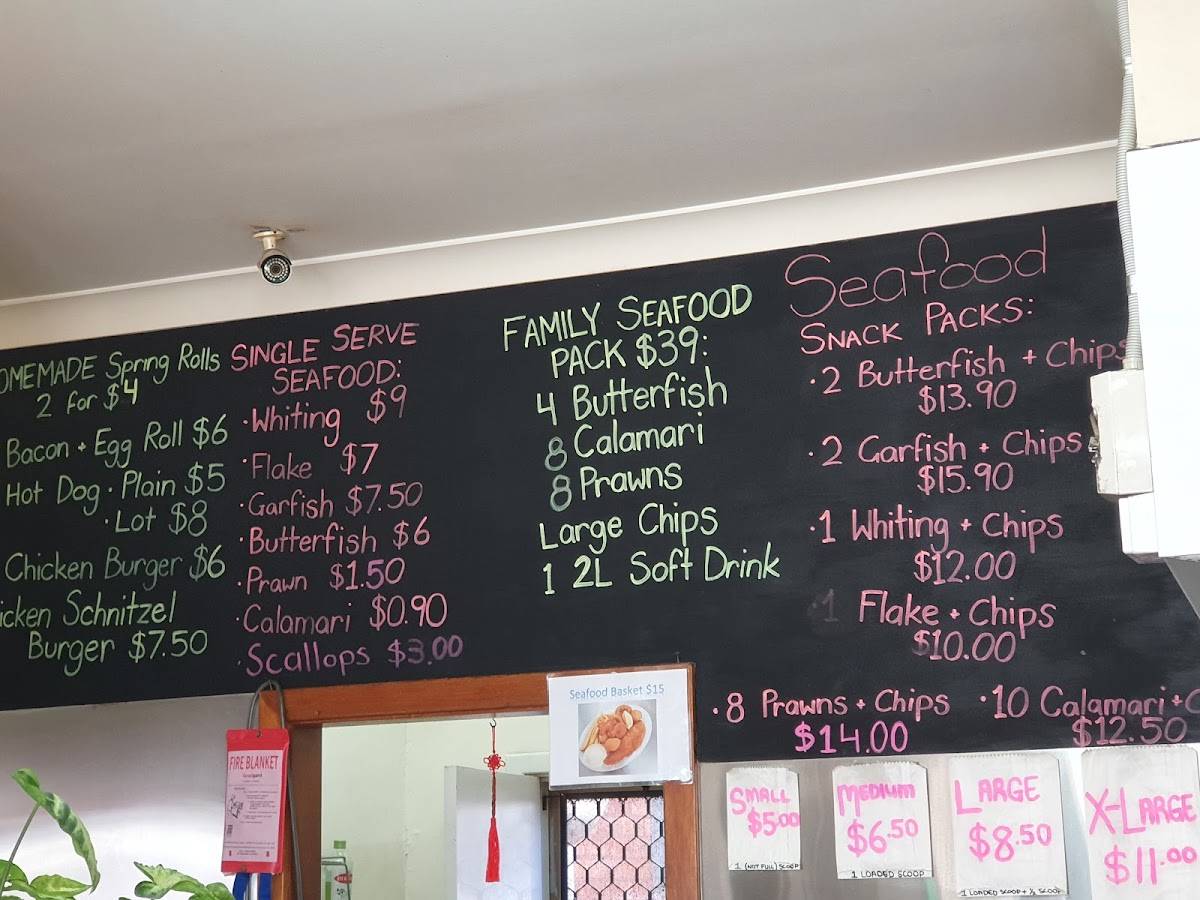 OMEMADE Spring Rolls
2 for $4
Bacon + Egg Roll $6
Hot Dog · Plain $5
· Lot $8
Chicken Burger $6
icken Schnitzel
Burger $7.50
SINGLE SERVE
SEAFOOD:
· Whiting $9
· Flake $7
· Garfish $7.50
· Butterfish $6
· Prawn $1.50
· Calamari $0.90
· Scallops $3.00
FAMILY SEAFOOD
PACK $39:
4 Butterfish
8 Calamari
8 Prawns
Large Chips
1 2L Soft Drink
Seafood
SNACK PACKS:
· 2 Butterfish + Chips
$13.90
· 2 Garfish + Chips
$15.90
· 1 Whiting + Chips
$12.00
1 Flake + Chips
$10.00
· 8 Prawns + Chips
$14.00
· 10 Calamari + C
$12.50
Seafood Basket $15
FIRE BLANKET
SMALL
$5.00
1 (NOT FULL) SCOOP
MEDIUM
$6.50
1 LOADED SCOOP
LARGE
$8.50
1 LOADED SCOOP + ½ SCOOP
X-LARGE
$11.00